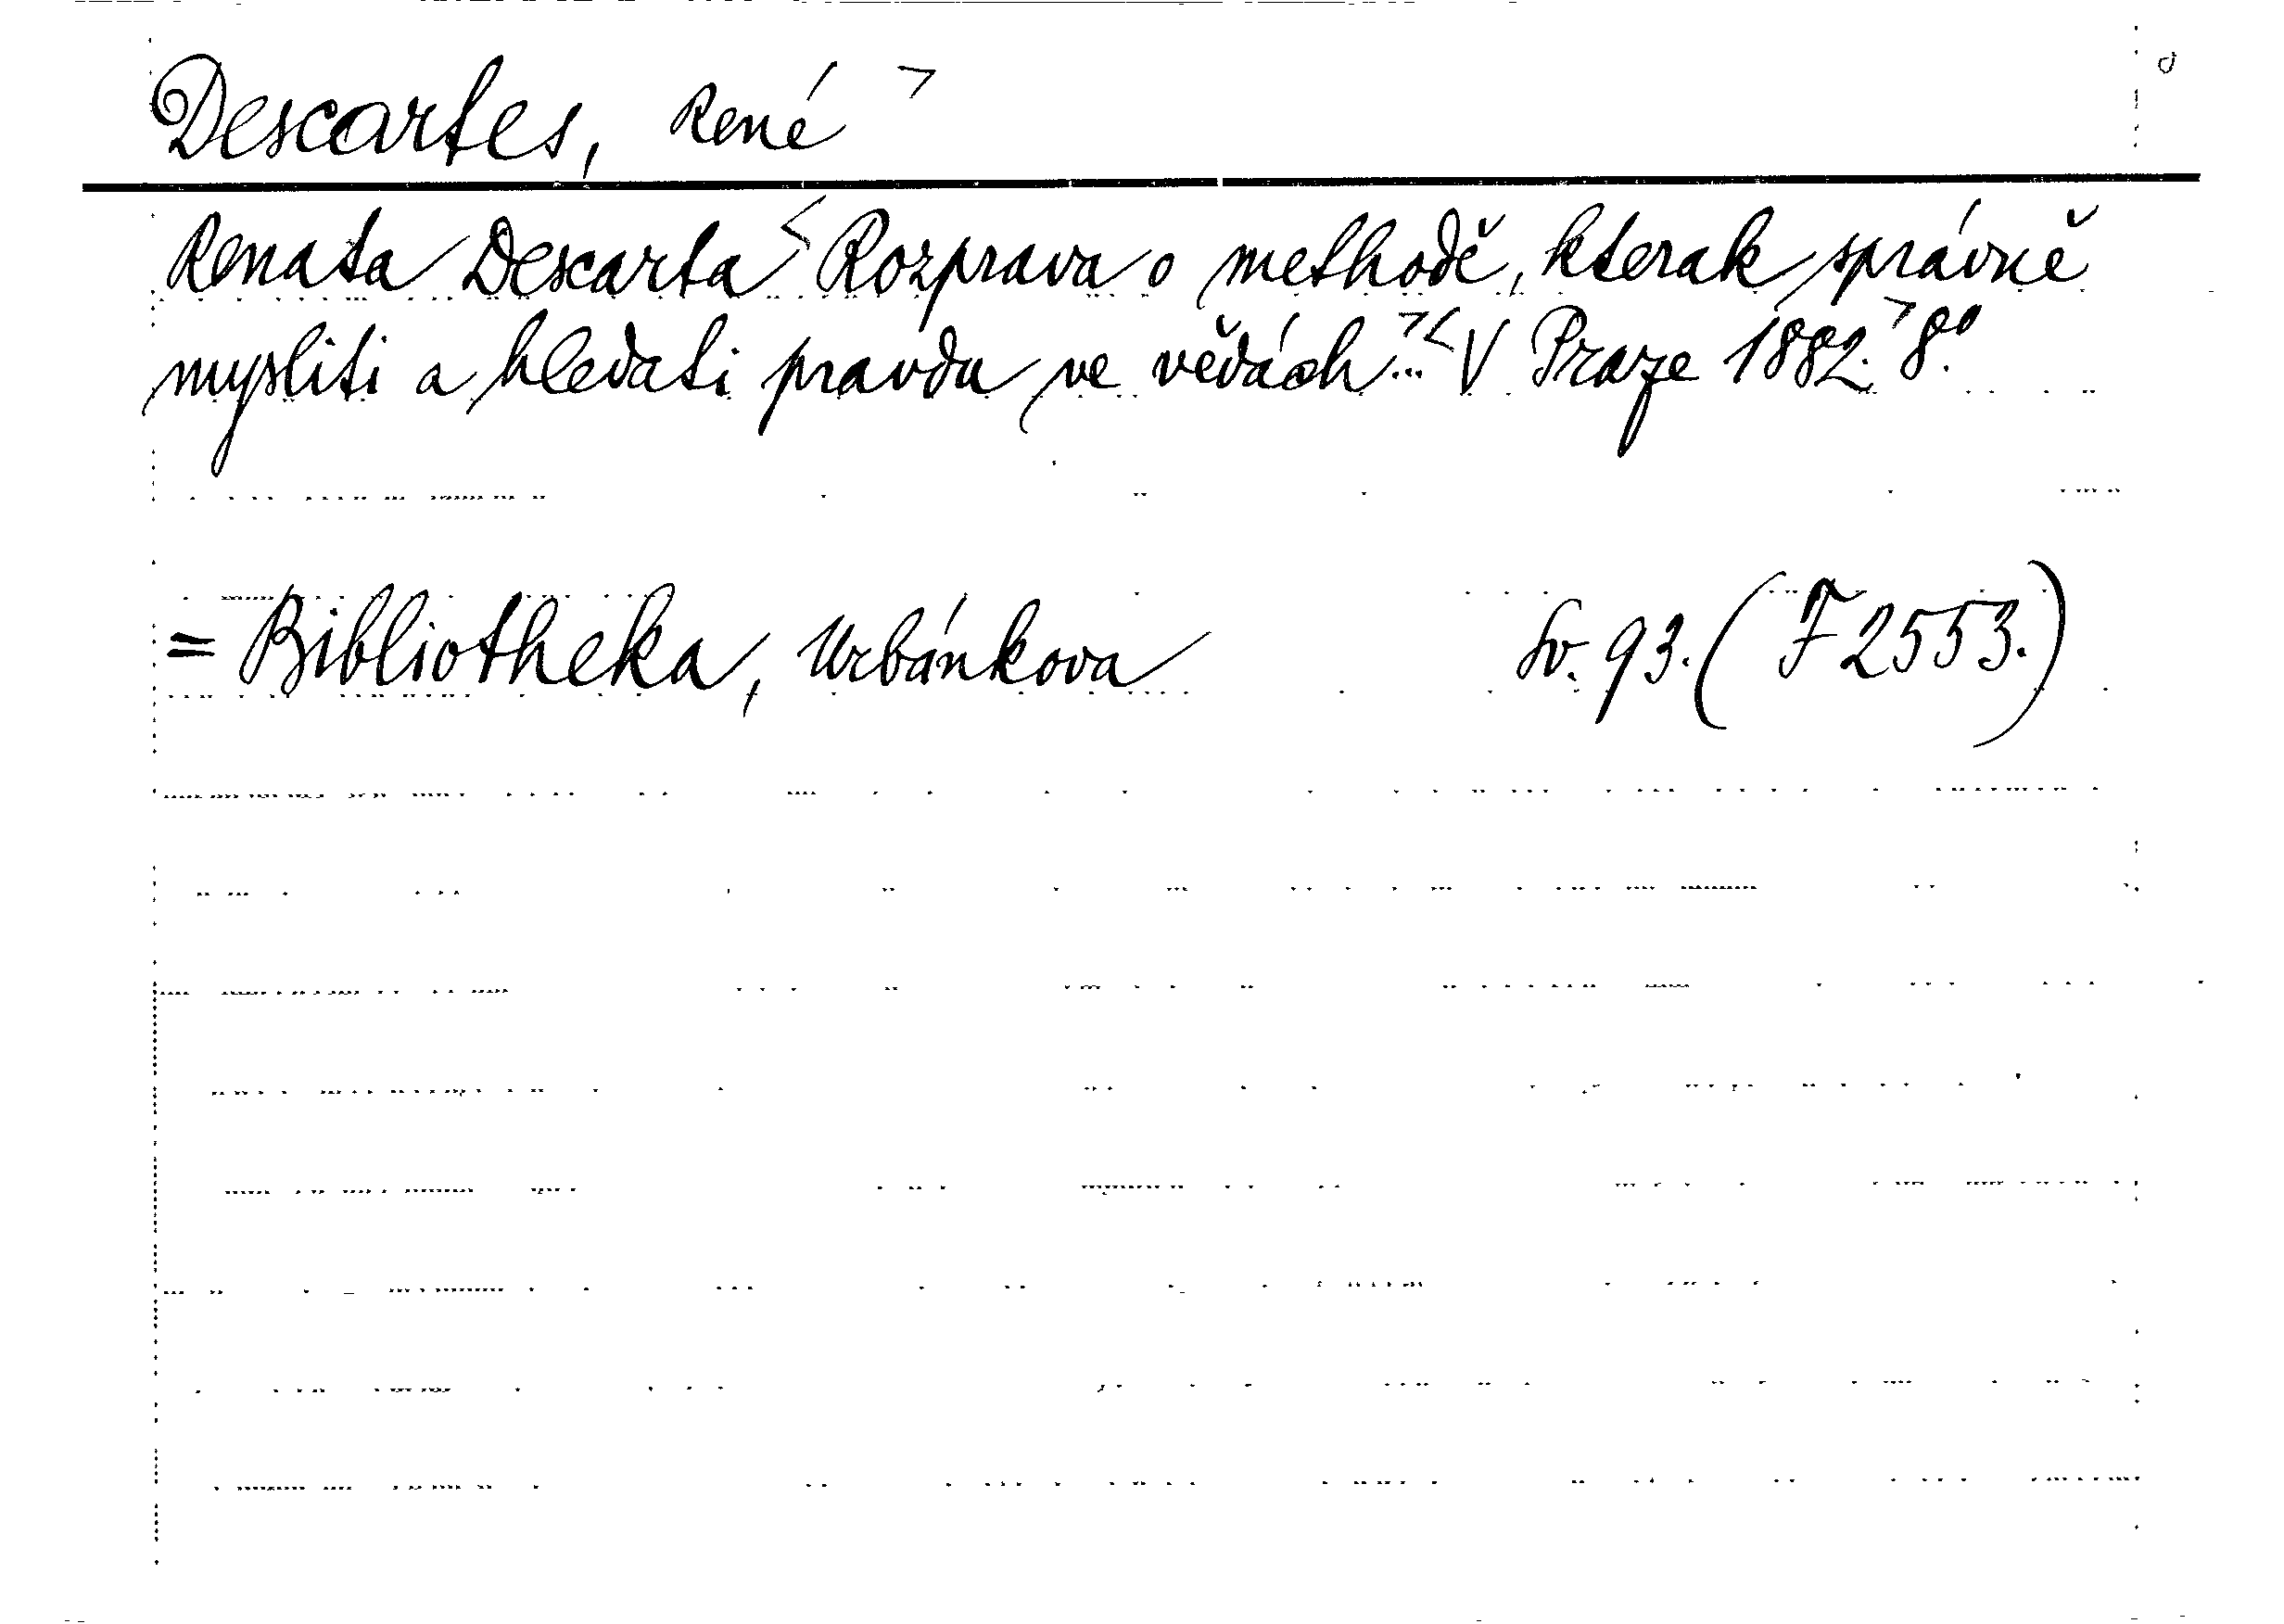 Descartes, René
Renata Descarta Rozprava o methodě, kterak správně
mysliti a hledati pravdu ve vědách... V Praze 1882. 8°.
= Bibliotheka, Urbánkova Sv. 93. (F 2553.)